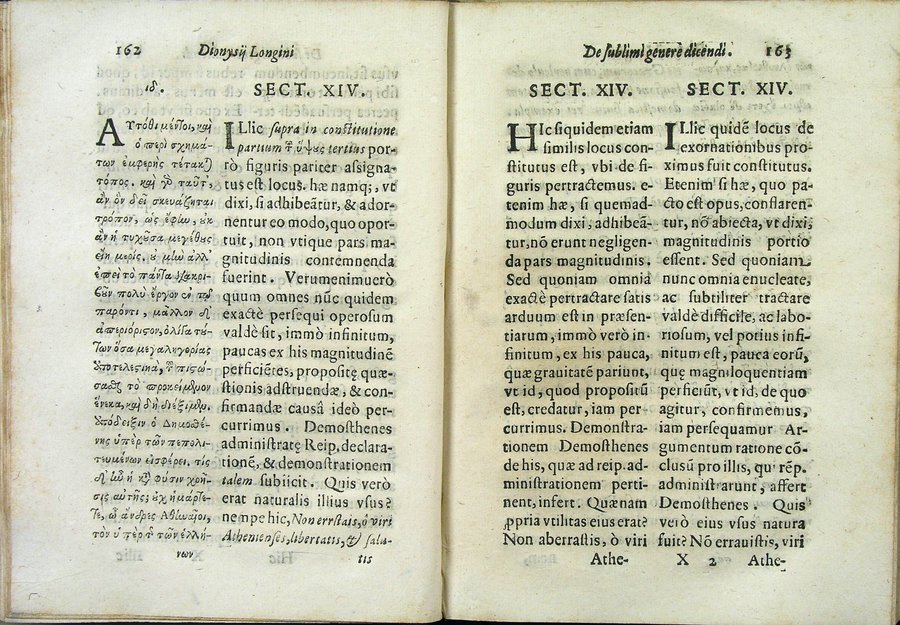 162 Dionysij Longini
ιδ.
ΑΥτόθι μέντοι, καὶ
ὁ περὶ σχημά-
των ἐμφερὴς τέτακ)
τόπος. καὶ γὸ ταῦτ',
ἂν ὃν δεῖ σκευάζηται
τρόπον, ὡς ἔφην, οὐκ
ἂν ἡ τυχοῦσα μεγέθους
εἴη μερίς. οὐ μὴν ἀλλ'
ἐπεὶ τὸ πάντα διακρι-
βοῦν πολὺ ἔργον ἐν τῷ
παρόντι, μᾶλλον δ'
ἀπεριόριστον, ὀλίγα τού-
των ὅσα μεγαληγορίας
ἀποτελεστικὰ, τοῦ πιστώ-
σασθαι τὸ προκείμενον
ἕνεκα, καὶ δὴ διέξιμεν.
ἀπόδειξιν ὁ Δημοσθέ-
νης ὑπὲρ τῶν πεπολι-
τευμένων εἰσφέρει. τίς
δ' ἦν ἡ κατὰ φύσιν χρῆ-
σις αὐτῆς; οὐχ ἡμάρτε-
τε, ὦ ἄνδρες Ἀθηναῖοι,
τὸν ὑπὲρ τῆς τῶν ἑλλή-
νων
SECT. XIV.
ILlic supra in constitutione
partium τ̃ ὕψους tertius por-
rò figuris pariter assigna-
tus est locus. hæ namq;, vt
dixi, si adhibeātur, & ador-
nentur eo modo, quo opor-
tuit, non vtique pars ma-
gnitudinis contemnenda
fuerint. Verumenimuerò
quum omnes nūc quidem
exactè persequi operosum
valdè sit, immò infinitum,
paucas ex his magnitudinē
perficiētes, propositę quæ-
stionis adstruendæ, & con-
firmandæ causâ ideò per-
currimus. Demosthenes
administratę Reip. declara-
tionē, & demonstrationem
talem subiicit. Quis verò
erat naturalis illius vsus?
nempe hic, Non errastis, ô viri
Athenienses, libertatis, & salu-
tis
De sublimi genere dicendi. 163
SECT. XIV.
HIc siquidem etiam
similis locus con-
stitutus est, vbi de fi-
guris pertractemus. e-
tenim hæ, si quemad-
modum dixi, adhibeā-
tur, nō erunt negligen-
da pars magnitudinis.
Sed quoniam omnia
exactè pertractare satis
arduum est in præsen-
tiarum, immò verò in-
finitum, ex his pauca,
quæ grauitatē pariunt,
vt id, quod propositū
est, credatur, iam per-
currimus. Demonstra-
tionem Demosthenes
de his, quæ ad reip. ad-
ministrationem perti-
nent, infert. Quænam
ꝓpria vtilitas eius erat?
Non aberrastis, ò viri
Athe-
SECT. XIV.
ILlic quidē locus de
exornationibus pro-
ximus fuit constitutus.
Etenim si hæ, quo pa-
cto est opus, conflaren-
tur, nō abiecta, vt dixi,
magnitudinis portio
essent. Sed quoniam
nunc omnia enucleate,
ac subtiliter tractare
valdè difficile, ac labo-
riosum, vel potius infi-
nitum est, pauca eorū,
quę magniloquentiam
perficiūt, vt id, de quo
agitur, confirmemus,
iam persequamur. Ar-
gumentum ratione cō-
clusū pro illis, qui rēp.
administrarunt, affert
Demosthenes. Quis
verò eius vsus natura
fuit? Nō errauistis, viri
X 2 Athe-